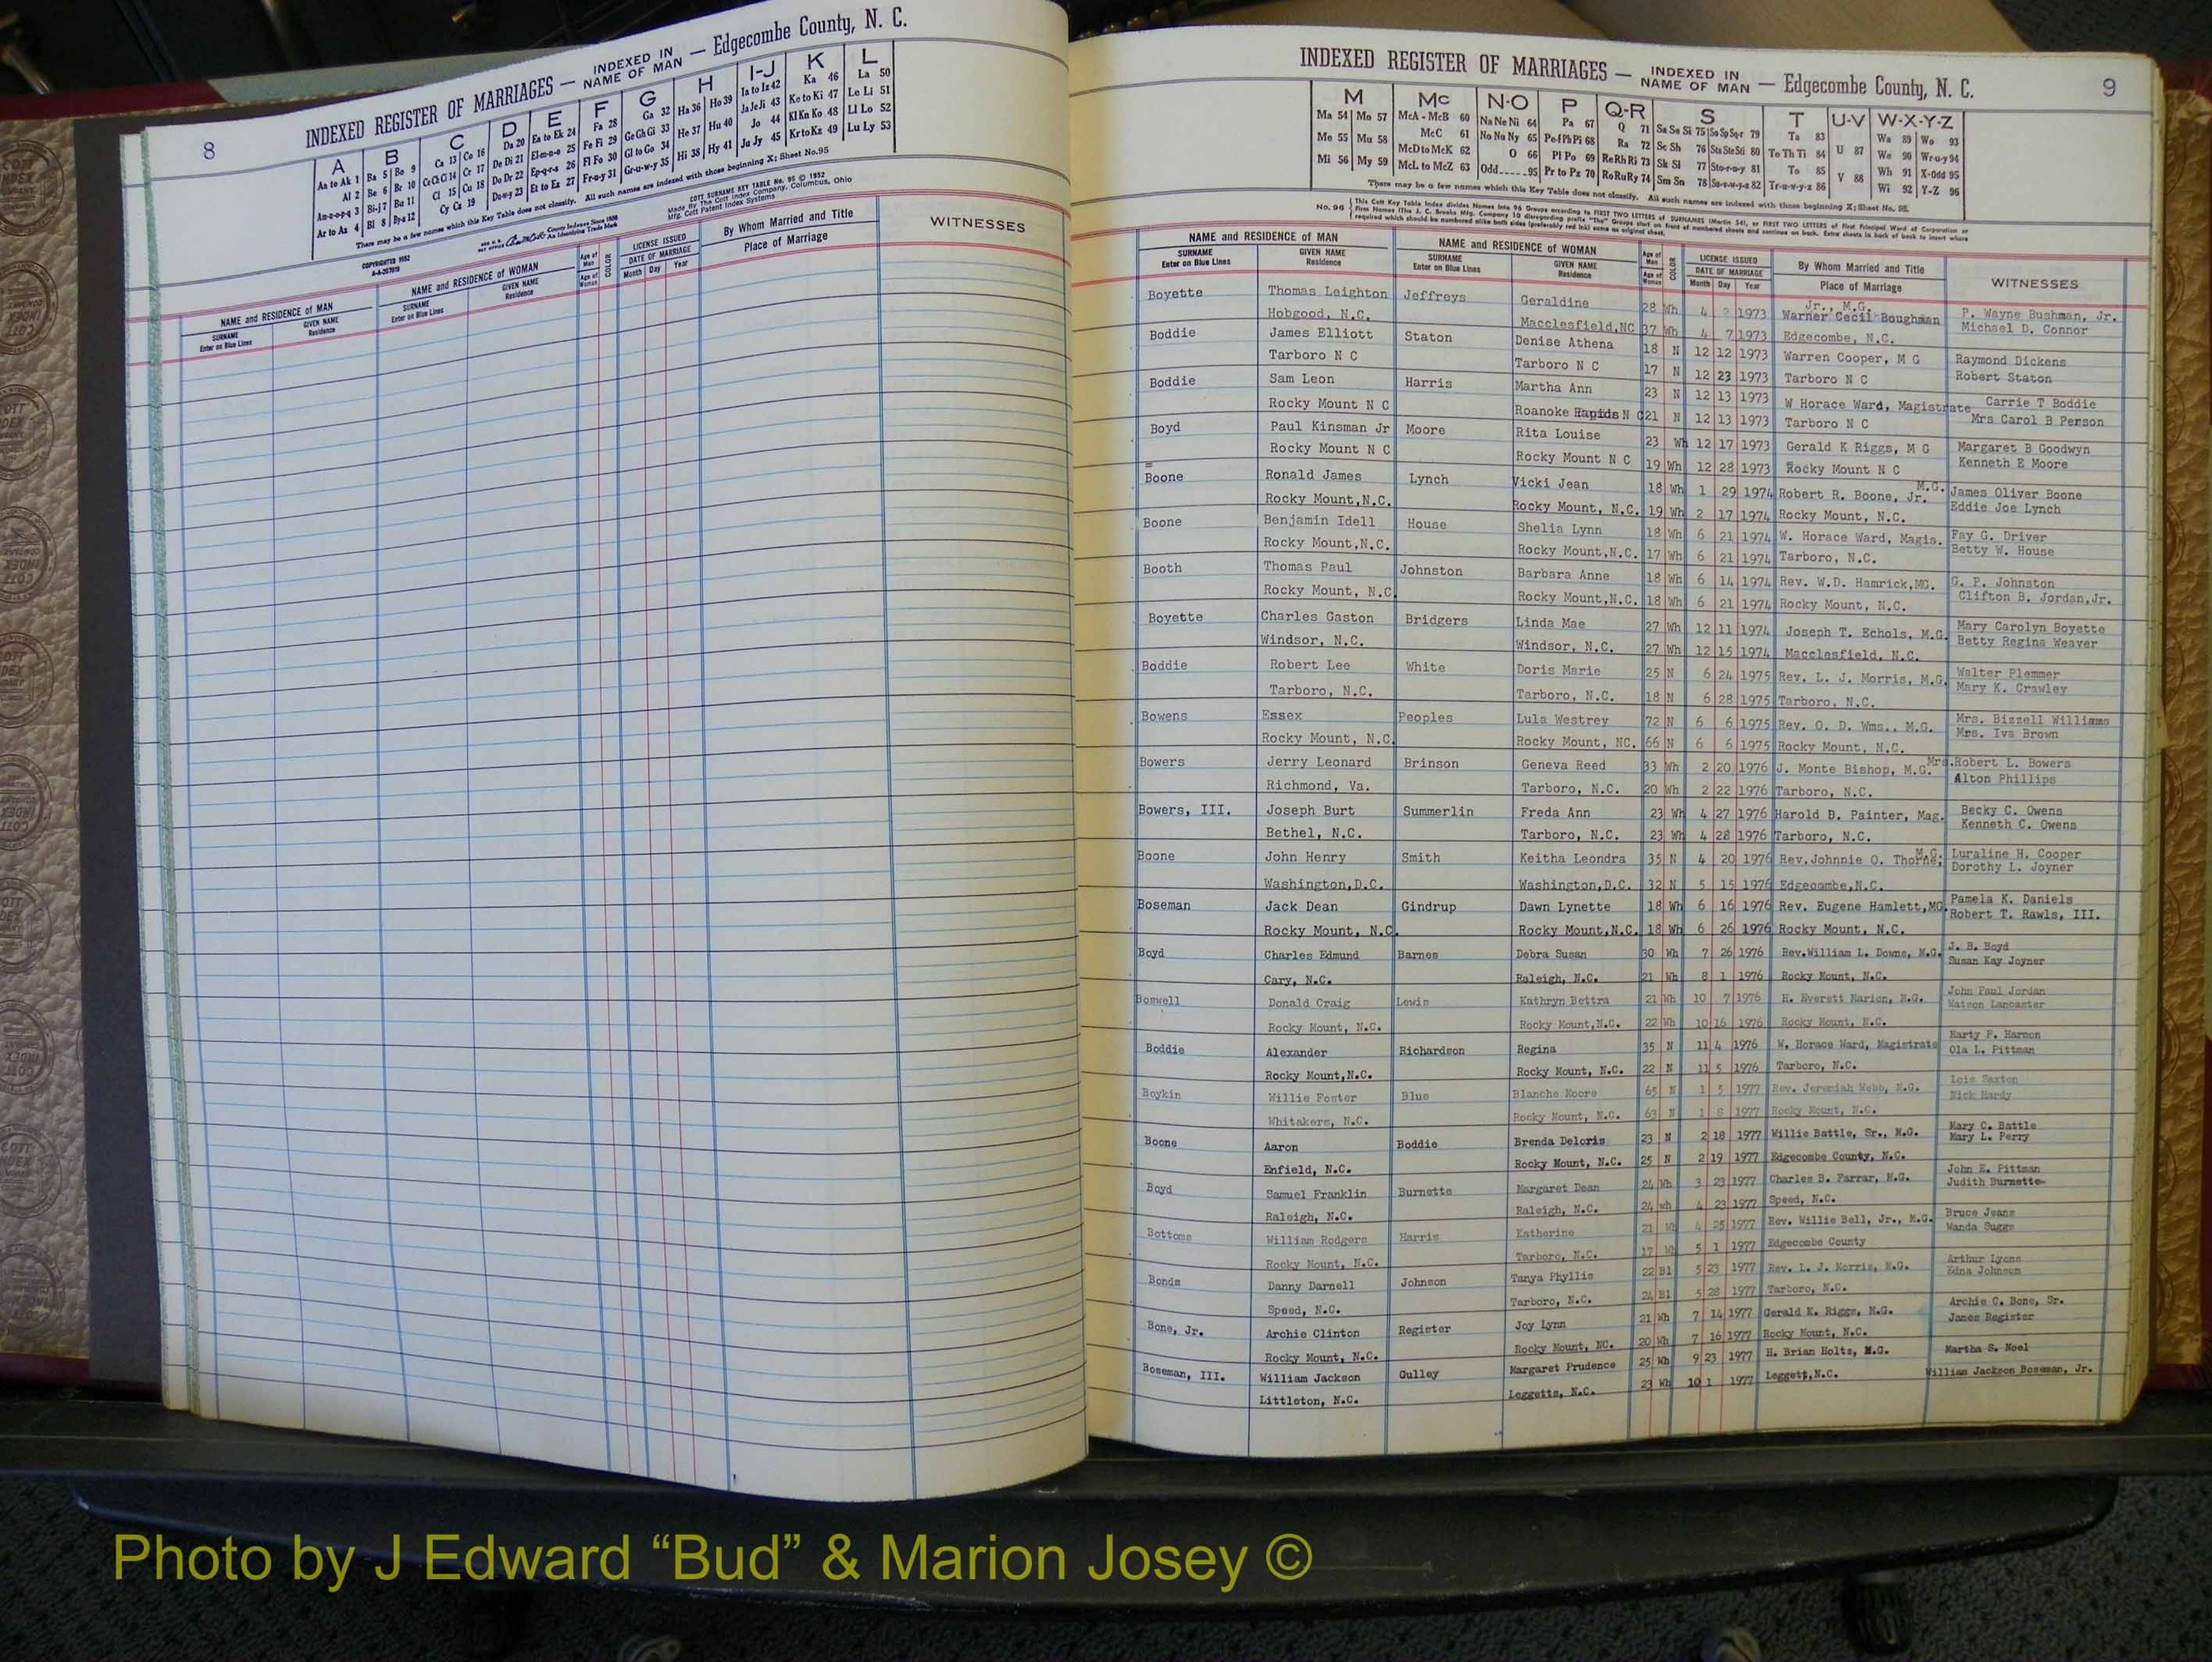 8
INDEXED REGISTER OF MARRIAGES — INDEXED IN NAME OF MAN — Edgecombe County, N. C.
A B C D E F G H I-J K L
Aa to Ak 1 Ba 5 Bo 9 Ca 13 Co 16 Da 20 Ea to Ek 24 Fa 28 Ga 32 Ha 36 Ho 39 Ia to Iz 42 Ka 46 La 50
Al 2 Be 6 Br 10 Ce Ch Ci 14 Cr 17 De Di 21 El-m-n-o 25 Fe Fi 29 Ge Gh Gi 33 He 37 Hu 40 Ja Je Ji 43 Ke to Ki 47 Le Li 51
Am-n-o-p-q 3 Bi-j 7 Bu 11 Cl 15 Cu 18 Do Dr 22 Ep-q-r-s 26 Fl Fo 30 Gl to Go 34 Hi 38 Hy 41 Jo 44 Kl Kn Ko 48 Ll Lo 52
Ar to Az 4 Bl 8 By-z 12 Cy Cz 19 Du-w-y 23 Et to Ez 27 Fr-u-y 31 Gr-u-w-y 35 Ju Jy 45 Kr to Kz 49 Lu Ly 53
There may be a few names which this Key Table does not classify. All such names are indexed with those beginning X; Sheet No. 95
COPYRIGHTED 1952
COTT SURNAME KEY TABLE No. 96 © 1952
Made By The Cott Index Company, Columbus, Ohio
Mfg. Cott Patent Index Systems
NAME and RESIDENCE of MAN
SURNAME
Enter on Blue Lines
GIVEN NAME
Residence
NAME and RESIDENCE of WOMAN
SURNAME
Enter on Blue Lines
GIVEN NAME
Residence
Age of Man
Age of Woman
COLOR
LICENSE ISSUED
DATE OF MARRIAGE
Month Day Year
By Whom Married and Title
Place of Marriage
WITNESSES
INDEXED REGISTER OF MARRIAGES — INDEXED IN NAME OF MAN — Edgecombe County, N. C.
9
M Mc N-O P Q-R S T U-V W-X-Y-Z
Ma 54 Mo 57 McA - McB 60 Na Ne Ni 64 Pa 67 Q 71 Sa Se Si 75 So Sp Sq-r 79 Ta 83 U 87 Wa 89 Wo 93
Me 55 Mu 58 McC 61 No Nu Ny 65 Pe-f Ph Pi 68 Ra 72 Sc Sh 76 Sta Ste Sti 80 Te Th Ti 84 We 90 Wr-u-y 94
Mi 56 My 59 McD to McK 62 O 66 Pl Po 69 Re Rh Ri 73 Sk Sl 77 Sto-r-u-y 81 To 85 V 88 Wh 91 X-Odd 95
McL to McZ 63 Odd 95 Pr to Pz 70 Ro Ru Ry 74 Sm Sn 78 Su-v-w-y-z 82 Tr-u-w-y-z 86 Wi 92 Y-Z 96
There may be a few names which this Key Table does not classify. All such names are indexed with those beginning X; Sheet No. 95.
NAME and RESIDENCE of MAN
SURNAME
Enter on Blue Lines
GIVEN NAME
Residence
NAME and RESIDENCE of WOMAN
SURNAME
Enter on Blue Lines
GIVEN NAME
Residence
Age of Man
Age of Woman
COLOR
LICENSE ISSUED
DATE OF MARRIAGE
Month Day Year
By Whom Married and Title
Place of Marriage
WITNESSES
Boyette Thomas Leighton Jeffreys Geraldine 28 Wh 4 2 1973 Warner Cecil Boughman Jr., M.G. P. Wayne Bushman, Jr.
Hobgood, N.C. Macclesfield,NC 37 Wh 4 7 1973 Edgecombe, N.C. Michael D. Connor
Boddie James Elliott Staton Denise Athena 18 N 12 12 1973 Warren Cooper, M G Raymond Dickens
Tarboro N C Tarboro N C 17 N 12 23 1973 Tarboro N C Robert Staton
Boddie Sam Leon Harris Martha Ann 23 N 12 13 1973 W Horace Ward, Magistrate Carrie T Boddie
Rocky Mount N C Roanoke Rapids N C 21 N 12 13 1973 Tarboro N C Mrs Carol B Person
Boyd Paul Kinsman Jr Moore Rita Louise 23 Wh 12 17 1973 Gerald K Riggs, M G Margaret B Goodwyn
Rocky Mount N C Rocky Mount N C 19 Wh 12 28 1973 Rocky Mount N C Kenneth E Moore
Boone Ronald James Lynch Vicki Jean 18 Wh 1 29 1974 Robert R. Boone, Jr. M.G. James Oliver Boone
Rocky Mount,N.C. Rocky Mount, N.C. 19 Wh 2 17 1974 Rocky Mount, N.C. Eddie Joe Lynch
Boone Benjamin Idell House Shelia Lynn 18 Wh 6 21 1974 W. Horace Ward, Magis. Fay G. Driver
Rocky Mount,N.C. Rocky Mount,N.C. 17 Wh 6 21 1974 Tarboro, N.C. Betty W. House
Booth Thomas Paul Johnston Barbara Anne 18 Wh 6 14 1974 Rev. W.D. Hamrick,MG. G. P. Johnston
Rocky Mount, N.C Rocky Mount,N.C. 18 Wh 6 21 1974 Rocky Mount, N.C. Clifton B. Jordan,Jr.
Boyette Charles Gaston Bridgers Linda Mae 27 Wh 12 11 1974 Joseph T. Echols, M.G. Mary Carolyn Boyette
Windsor, N.C. Windsor, N.C. 27 Wh 12 15 1974 Macclesfield, N.C. Betty Regina Weaver
Boddie Robert Lee White Doris Marie 25 N 6 24 1975 Rev. L. J. Morris, M.G. Walter Plemmer
Tarboro, N.C. Tarboro, N.C. 18 N 6 28 1975 Tarboro, N.C. Mary K. Crawley
Bowens Essex Peoples Lula Westrey 72 N 6 6 1975 Rev. O. D. Wms., M.G. Mrs. Bizzell Williams
Rocky Mount, N.C. Rocky Mount, NC. 66 N 6 6 1975 Rocky Mount, N.C. Mrs. Iva Brown
Bowers Jerry Leonard Brinson Geneva Reed 33 Wh 2 20 1976 J. Monte Bishop, M.G. Mrs.Robert L. Bowers
Richmond, Va. Tarboro, N.C. 20 Wh 2 22 1976 Tarboro, N.C. Alton Phillips
Bowers, III. Joseph Burt Summerlin Freda Ann 23 Wh 4 27 1976 Harold B. Painter, Mag. Becky C. Owens
Bethel, N.C. Tarboro, N.C. 23 Wh 4 28 1976 Tarboro, N.C. Kenneth C. Owens
Boone John Henry Smith Keitha Leondra 35 N 4 20 1976 Rev.Johnnie O. Thorne; M.G. Luraline H. Cooper
Washington,D.C. Washington,D.C. 32 N 5 15 1976 Edgecombe,N.C. Dorothy L. Joyner
Boseman Jack Dean Gindrup Dawn Lynette 18 Wh 6 16 1976 Rev. Eugene Hamlett,MG. Pamela K. Daniels
Rocky Mount, N.C. Rocky Mount,N.C. 18 Wh 6 26 1976 Rocky Mount, N.C. Robert T. Rawls, III.
Boyd Charles Edmund Barnes Debra Susan 30 Wh 7 26 1976 Rev.William L. Downs, M.G. J. B. Boyd
Cary, N.C. Raleigh, N.C. 21 Wh 8 1 1976 Rocky Mount, N.C. Susan Kay Joyner
Boswell Donald Craig Lewis Kathryn Bettra 21 Wh 10 7 1976 H. Everett Marion, M.G. John Paul Jordan
Rocky Mount, N.C. Rocky Mount,N.C. 22 Wh 10 16 1976 Rocky Mount, N.C. Watson Lancaster
Boddie Alexander Richardson Regina 35 N 11 4 1976 W. Horace Ward, Magistrate Marty P. Harmon
Rocky Mount,N.C. Rocky Mount, N.C. 22 N 11 5 1976 Tarboro, N.C. Ola L. Pittman
Boykin Willie Foster Blue Blanche Moore 65 N 1 5 1977 Rev. Jeremiah Webb, M.G. Lois Saxton
Whitakers, N.C. Rocky Mount, N.C. 63 N 1 8 1977 Rocky Mount, N.C. Nick Hardy
Boone Aaron Boddie Brenda Deloris 23 N 2 18 1977 Willie Battle, Sr., M.G. Mary C. Battle
Enfield, N.C. Rocky Mount, N.C. 25 N 2 19 1977 Edgecombe County, N.C. Mary L. Perry
Boyd Samuel Franklin Burnette Margaret Dean 24 Wh 3 23 1977 Charles B. Farrar, M.G. John E. Pittman
Raleigh, N.C. Raleigh, N.C. 24 wh 4 23 1977 Speed, N.C. Judith Burnette
Bottoms William Rodgers Harris Katherine 21 Wh 4 25 1977 Rev. Willie Bell, Jr., M.G. Bruce Jeans
Rocky Mount, N.C. Tarboro, N.C. 17 Wh 5 1 1977 Edgecombe County Wanda Suggs
Bonds Danny Darnell Johnson Tanya Phyllis 22 Bl 5 23 1977 Rev. L. J. Morris, M.G. Arthur Lyons
Speed, N.C. Tarboro, N.C. 24 Bl 5 28 1977 Tarboro, N.C. Edna Johnson
Bone, Jr. Archie Clinton Register Joy Lynn 21 Wh 7 14 1977 Gerald K. Riggs, M.G. Archie C. Bone, Sr.
Rocky Mount, N.C. Rocky Mount, NC. 20 Wh 7 16 1977 Rocky Mount, N.C. James Register
Boseman, III. William Jackson Gulley Margaret Prudence 25 Wh 9 23 1977 H. Brian Holts, M.G. Martha S. Noel
Littleton, N.C. Leggetts, N.C. 23 Wh 10 1 1977 Leggett,N.C. William Jackson Boseman, Jr.
Photo by J Edward “Bud” & Marion Josey ©